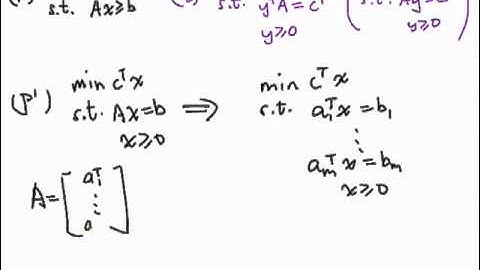 s.t. Ax≥b
s.t. yᵀA = cᵀ
y≥0
s.t. Aᵀy=
y≥0
(P')
min cᵀx
s.t. Ax=b
x≥0
⇒
min cᵀx
s.t. a₁ᵀx = b₁
⋮
aₘᵀx = bₘ
x≥0
A= [ a₁ᵀ
⋮
a ]